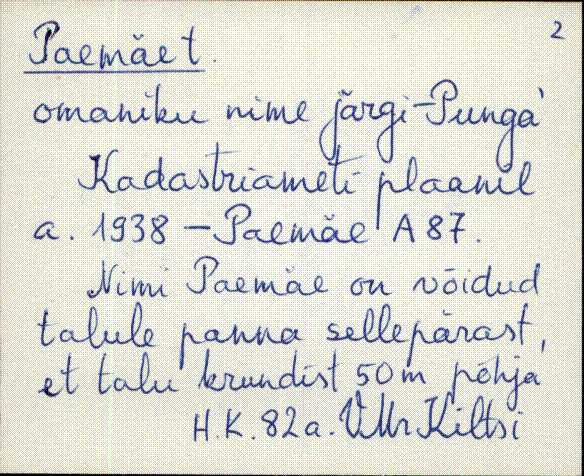 2
Paemäe t.
omaniku nime järgi - Punga
Kadastriameti plaanil
a. 1938 - Paemäe A 87.
Nimi Paemäe on võidud
talule panna sellepärast,
et talu krundist 50 m põhja
H.K. 82 a. VMr Kiltsi